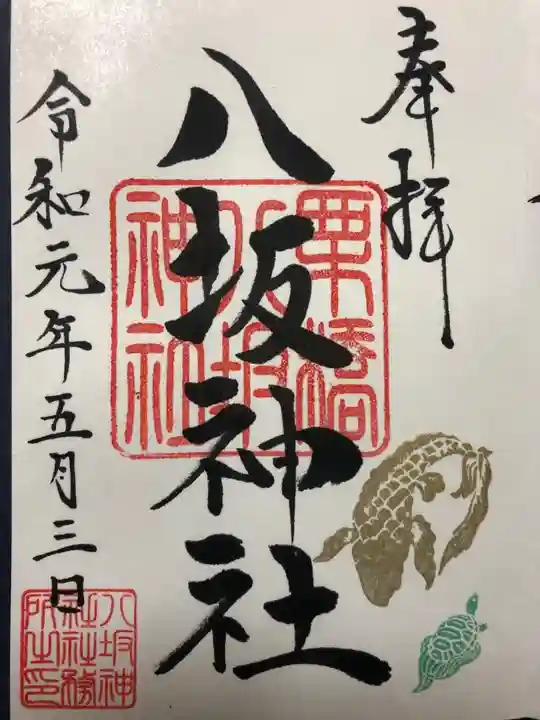 奉拝
八坂神社
令和元年五月三日
栗橋
八坂
神社
八坂神
社社務
所之印